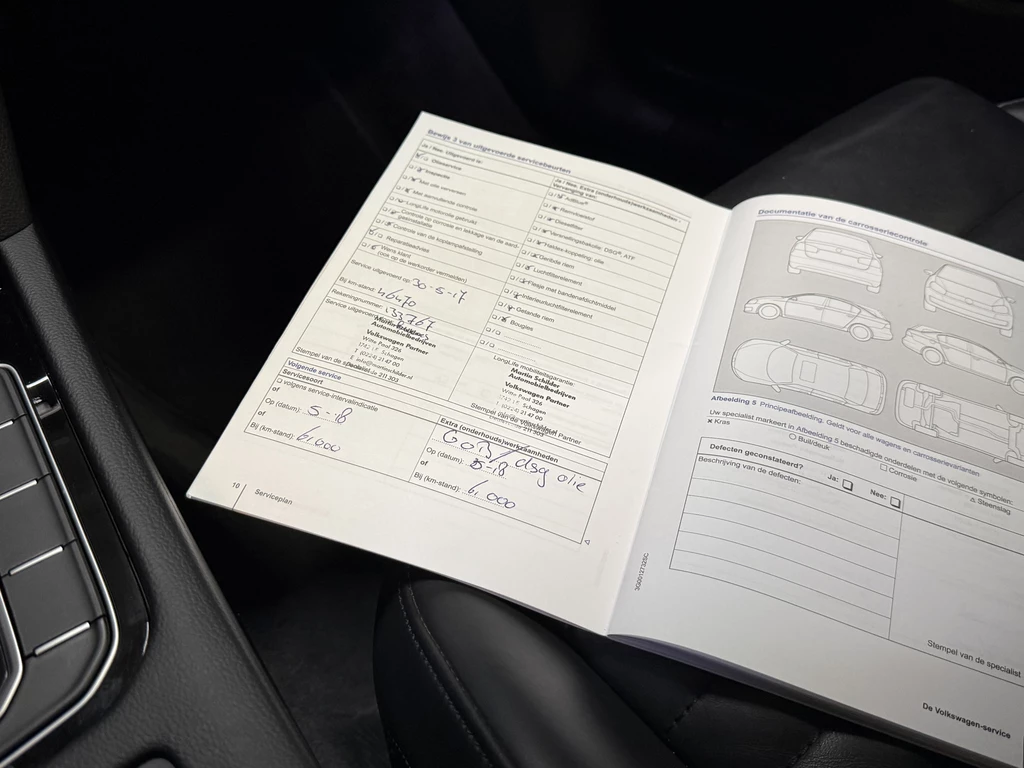 Bewijs 3 van uitgevoerde servicebeurten
Ja / Nee, Uitgevoerd is:
Olieservice
Inspectie
Met olie verversen
Met aanvullende controle
LongLife motorolie gebruikt
Controle op corrosie en lekkage van de aard-
Controle van de koplampafstelling
Reparatieadvies
Wens klant
(ook op de werkorder vermelden)
Service uitgevoerd op: 30-5-17
Bij km-stand: 46470
Rekeningnummer:
Service uitgevoerd
Martin Schilder
Automobielbedrijven
Volkswagen Partner
Witte Paal 326
1742 LE Schagen
T (0224) 21 47 00
E info@martinschilder.nl
Stempel van de
Ja / Nee, Extra (onderhouds)werkzaamheden:
Vervanging van:
AdBlue®
Remvloeistof
Dieselfilter
Versnellingsbakolie: DSG®, ATF
Haldex-koppeling: olie
Getande riem
Luchtfilterelement
Flesje met bandenafdichtmiddel
Interieurluchtfilterelement
Getande riem
Bougies
LongLife mobiliteitsgarantie:
Martin Schilder
Automobielbedrijven
Volkswagen Partner
Witte Paal 326
1742 LE Schagen
(0224) 21 47 00
Stempel van de Volkswagen Partner
Volgende service
Servicesoort
volgens service-intervalindicatie
Op (datum): 5-18
of
Bij (km-stand): 61.000
Extra (onderhouds)werkzaamheden
dsg olie
Op (datum): 5-18
of
Bij (km-stand): 61.000
10
Serviceplan
Documentatie van de carrosseriecontrole
Afbeelding 5 Principeafbeelding. Geldt voor alle wagens en carrosserievarianten.
Uw specialist markeert in Afbeelding 5 beschadigde onderdelen met de volgende symbolen:
× Kras
Buil/deuk
Corrosie
Steenslag
Defecten geconstateerd?
Ja:
Nee:
Beschrijving van de defecten:
Stempel van de specialist
3G0012732SC
De Volkswagen-service